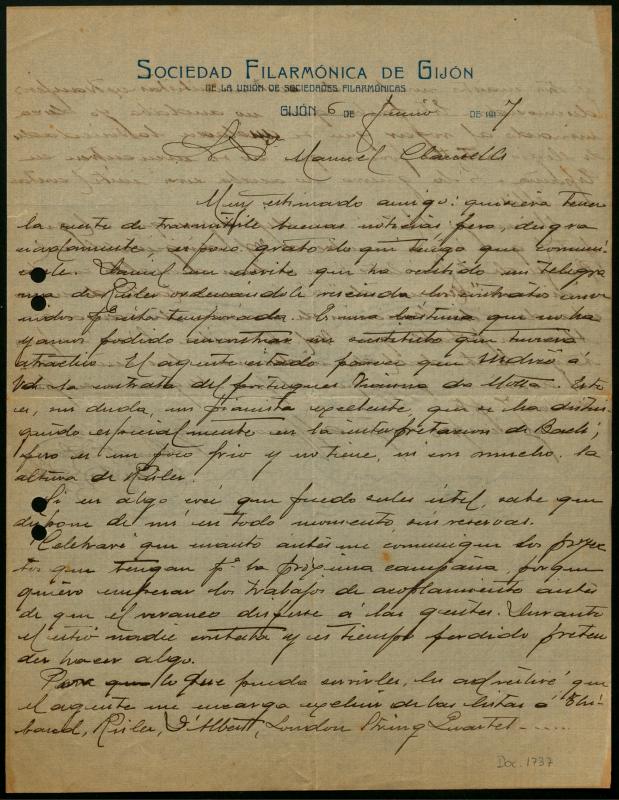 Sociedad Filarmónica de Gijón
de la Unión de Sociedades Filarmónicas
Gijón 6 de Junio de 1917
Sr. D. Manuel Clausells
Muy estimado amigo: quisiera tener
la suerte de trasmitirle buenas noticias pero, desgra
ciadamente es poco grato lo que tengo que comuni-
carle. Daniel me escribe que ha recibido un telegra
ma de Risler ordenándole rescinda los contratos
pª esta temporada. Es una lástima que no ha
yamos podido encontrar un sustituto que tuviera
atractivo. El agente citado parece que
Vd. la contrata del portugues Vianna da Motta. Este
es, sin duda, un pianista excelente, que se ha distin
guido especialmente en la interpretacion de Bach;
pero es un poco frio y no tiene, ni con mucho, la
altura de Risler.
Si en algo cree que puedo serles útil, sabe que
dispone de mi en todo momento sin reservas.
Celebraré que cuanto antes me comuniquen los proyec
tos que tengan pª la próxima campaña, porque
quiero empezar los trabajos de acoplamiento antes
de que el veraneo disperse á las gentes. Durante
el estío nadie contesta y es tiempo perdido preten
der hacer algo.
Para que lo que pueda servirles, les advertiré que
el agente me encarga excluir de las listas á Thi-
baud, Risler, D'Albert, London String Quartet -----
Doc. 1737